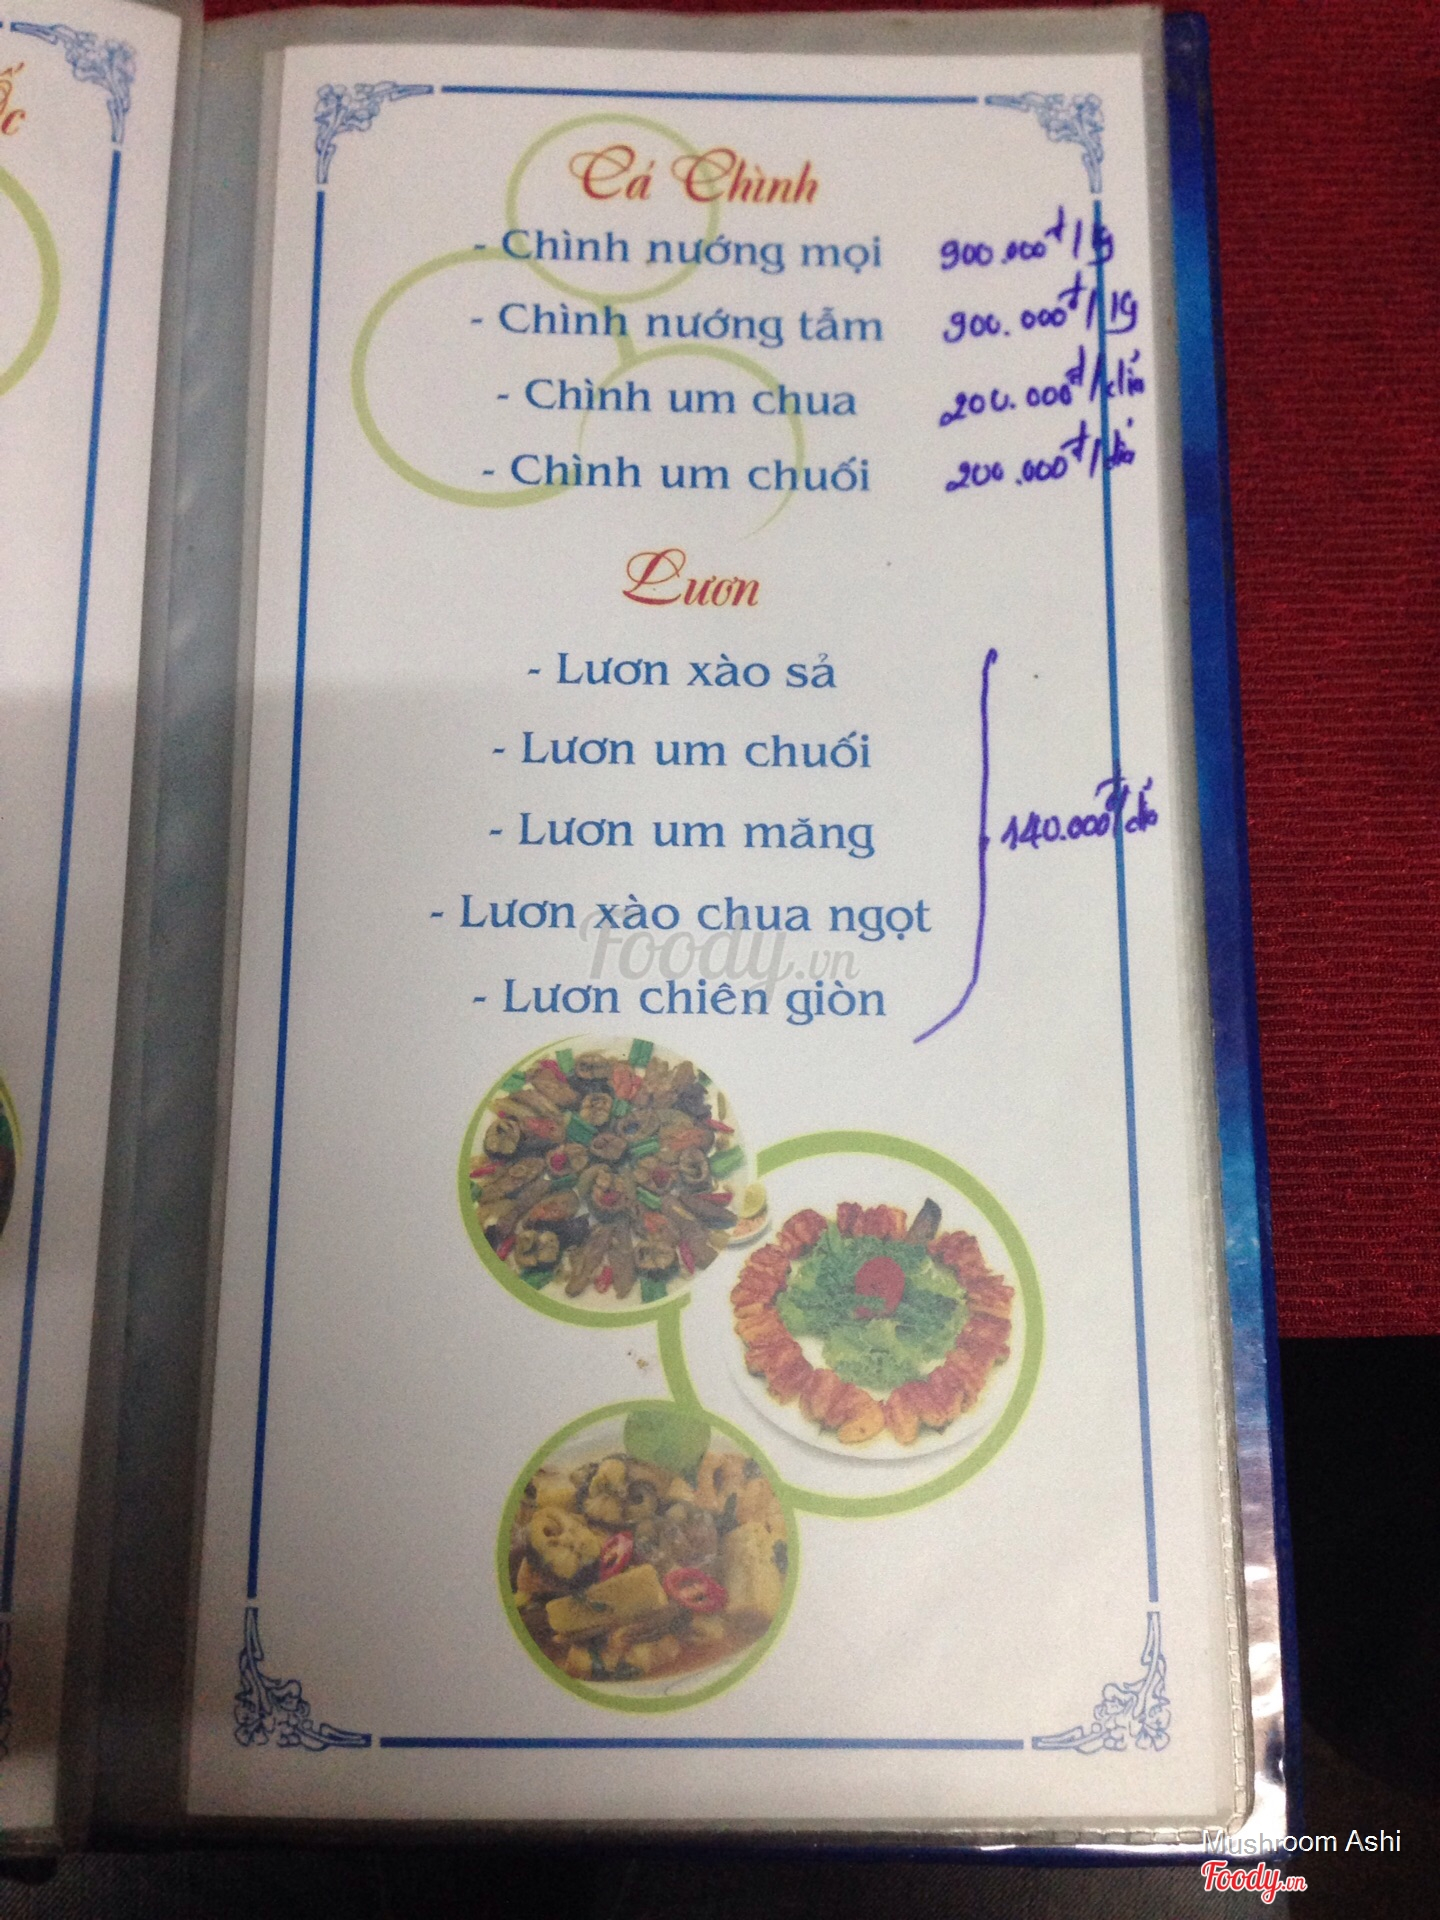 ốc
Cá Chình
- Chình nướng mọi 900.000đ/kg
- Chình nướng tẩm 900.000đ/kg
- Chình um chua 200.000đ/dĩa
- Chình um chuối 200.000đ/dĩa
Lươn
- Lươn xào sả
- Lươn um chuối
- Lươn um măng 140.000đ/dĩa
- Lươn xào chua ngọt
Foody.vn
- Lươn chiên giòn
Mushroom Ashi
Foody.vn